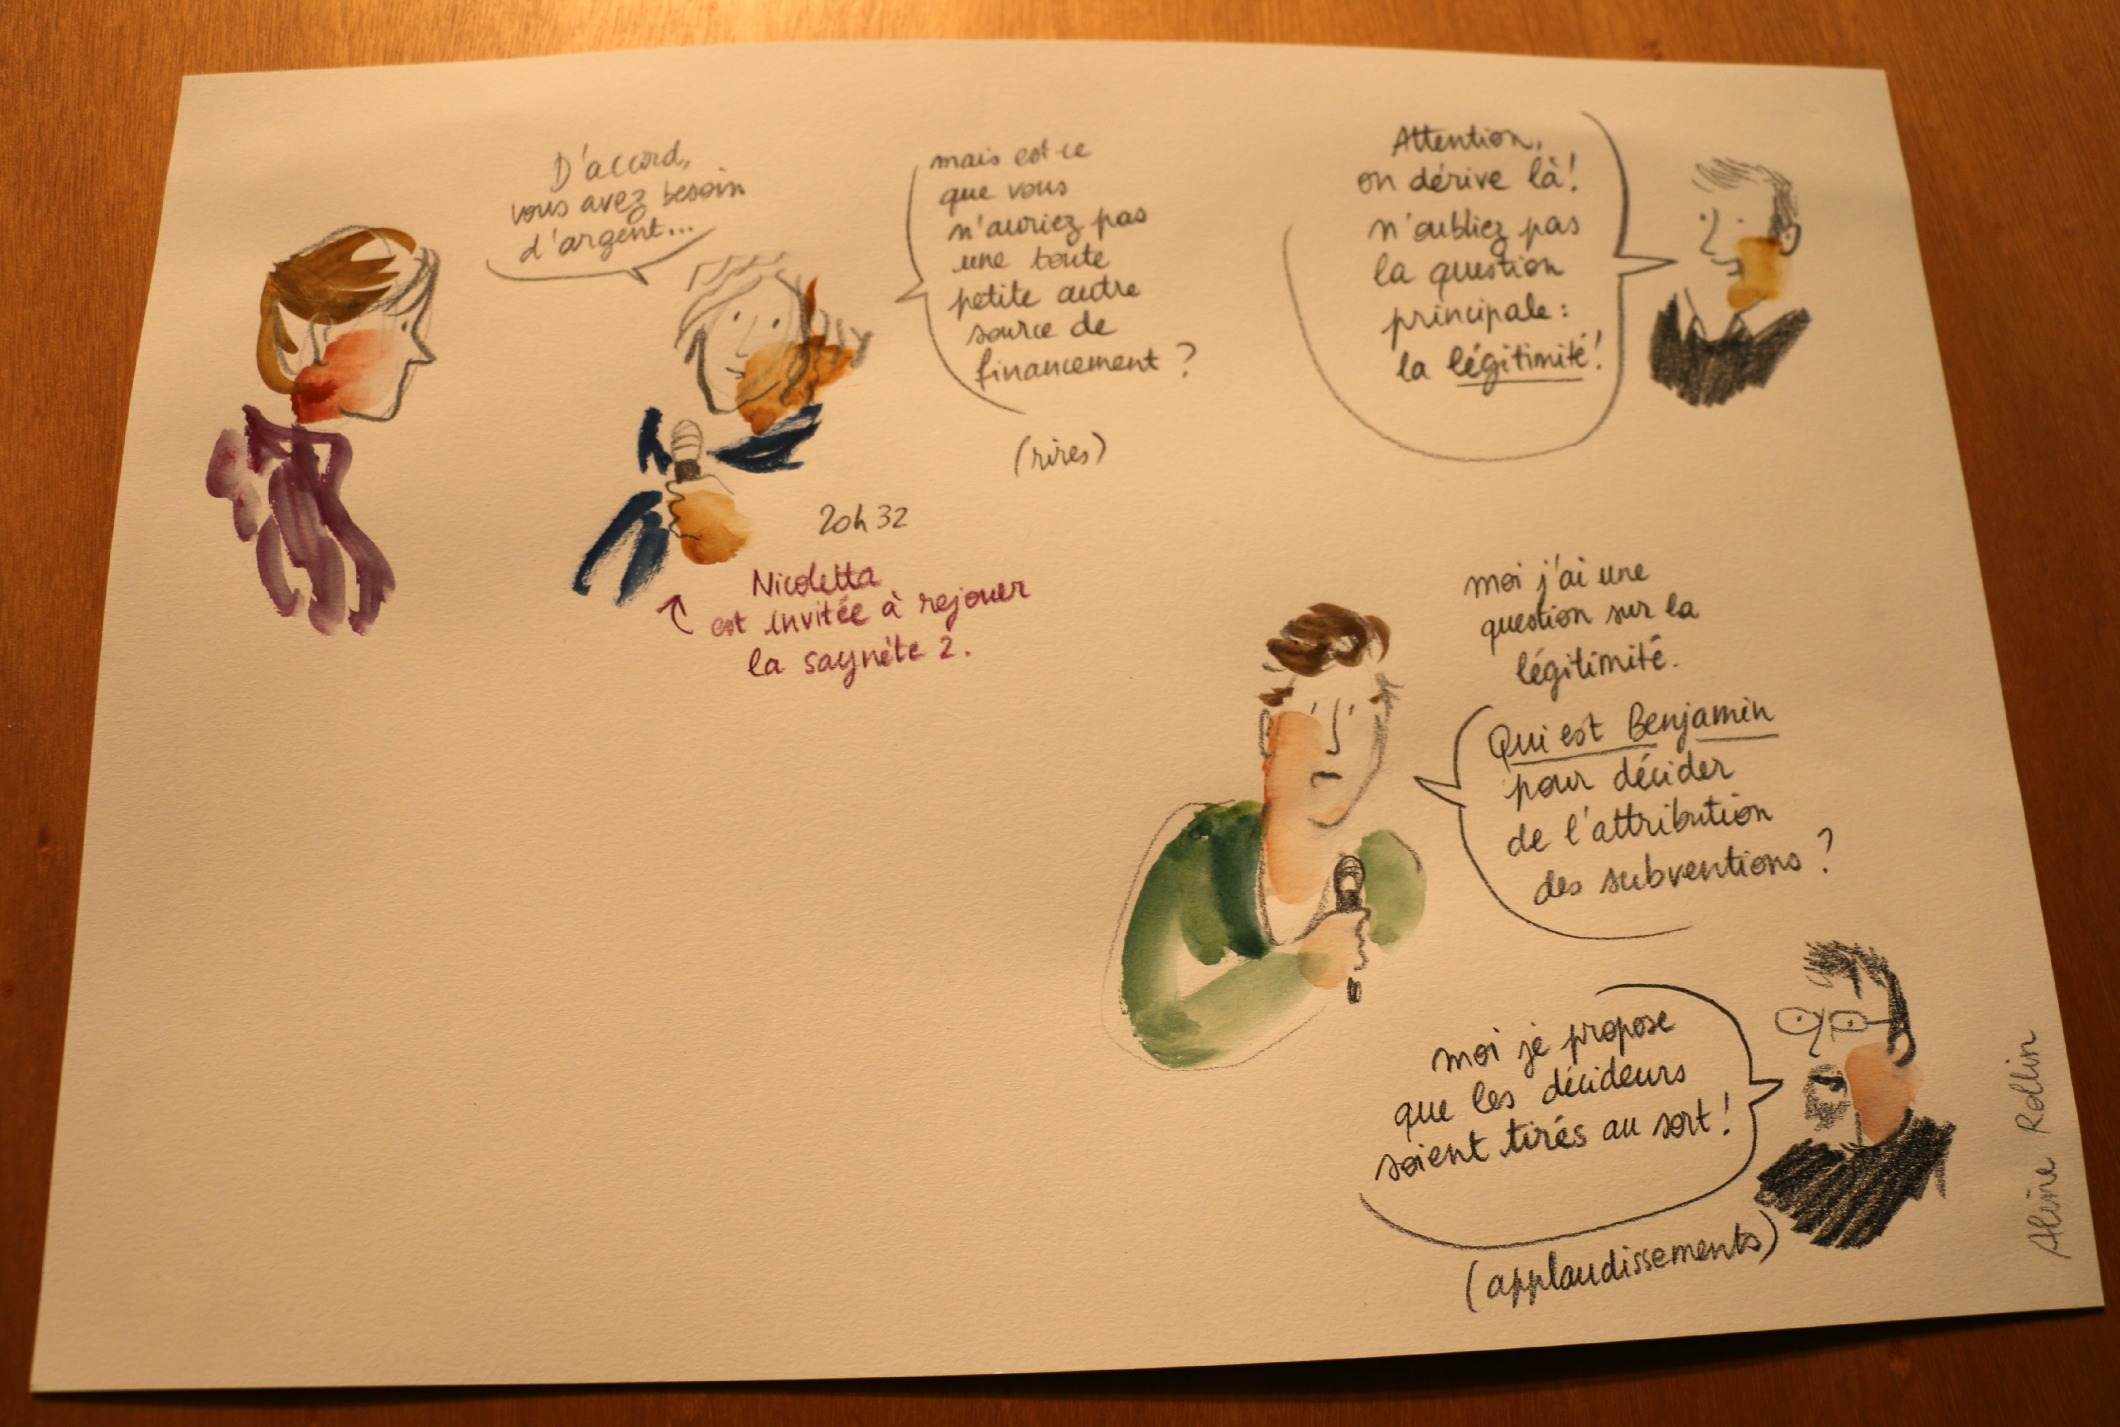 D'accord,
vous avez besoin
d'argent...
mais est-ce
que vous
n'auriez pas
une toute
petite autre
source de
financement ?
(rires)
20h32
Nicoletta
est invitée à rejouer
la saynète 2.
Attention,
on dérive là !
n'oubliez pas
la question
principale :
la légitimité !
moi j'ai une
question sur la
légitimité.
Qui est Benjamin
pour décider
de l'attribution
des subventions ?
moi je propose
que les décideurs
soient tirés au sort !
(applaudissements)
Aline Rollin